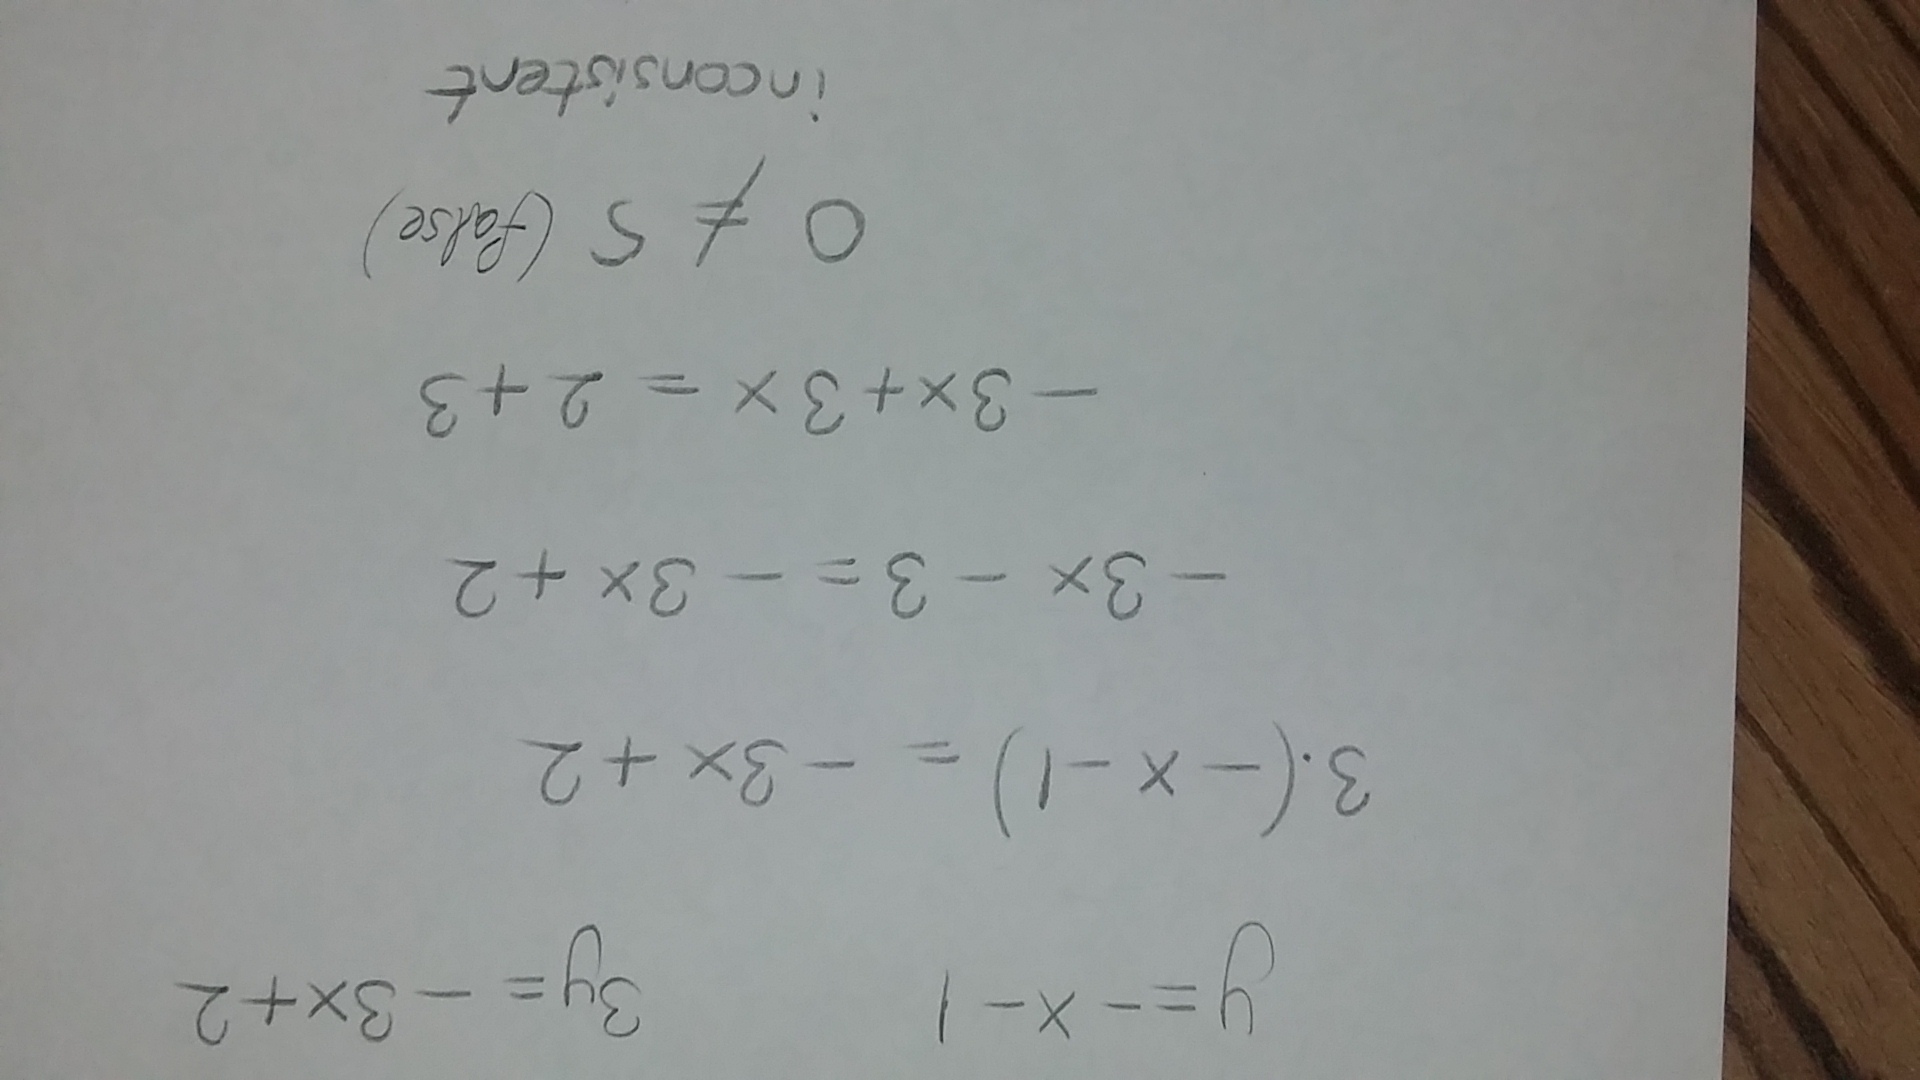 y = - x - 1 3y = - 3x + 2
3 · (- x - 1) = - 3x + 2
- 3x - 3 = - 3x + 2
- 3x + 3x = 2 + 3
0 ≠ 5 (false)
inconsistent